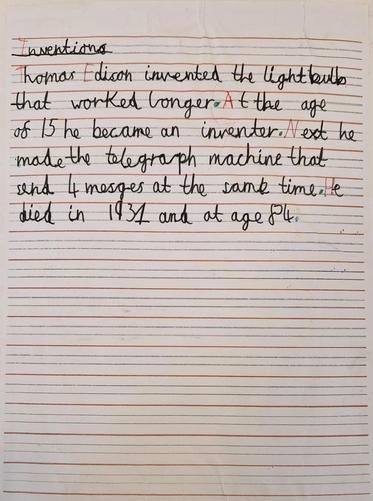 Inventions
Thomas Edison invented the lightbulb
that worked longer. At the age
of 15 he became an inventer. Next he
made the telegraph machine that
send 4 mesges at the same time. He
died in 1931 and at age 84.